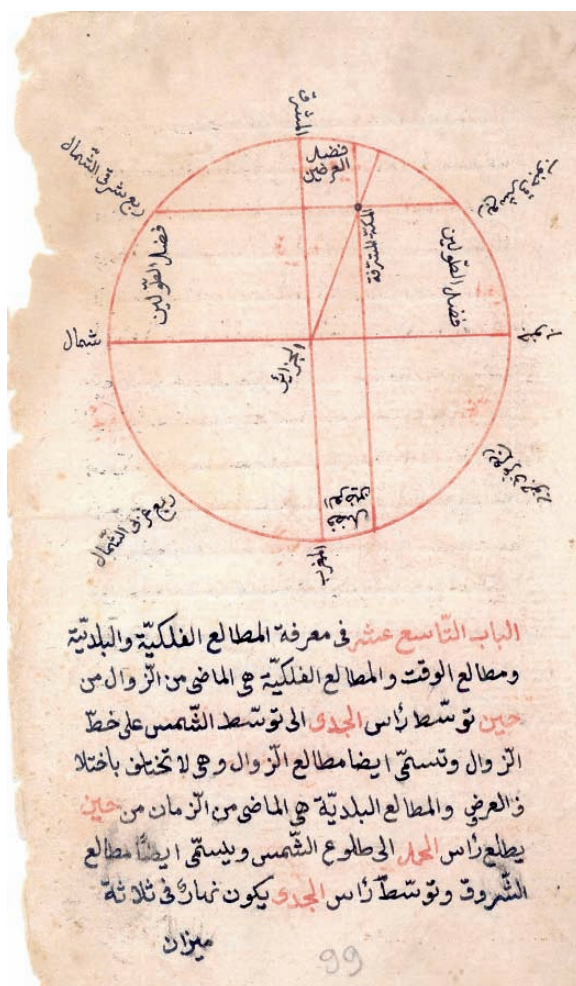 المشرق
فضل
العرضين
ربع شرقى الشمال
ربع شرقى جنوب
فضل الطولين
مكة المشرفة
فضل الطولين
شمال
جنوب
الجزائر
ربع غربى الشمال
ربع غربى جنوب
فضل
العرضين
المغرب
الباب التّاسع عشر فى معرفة المطالع الفلكيّة والبلديّة
ومطالع الوقت والمطالع الفلكيّة هى الماضى من الزّوال من
حين توسّط رٔاس الجدى الى توسّط الشّمس على خطّ
الزوال وتسمّى ايضا مطالع الزوال وهى لا تختلف باختلا
ف العرض والمطالع البلديّة هى الماضى من الزمان من حين
يطلع رٔاس الحمل الى طلوع الشّمس ويسمّى ايضًا مطالع
الشّروق وتوسّط رٔاس الجدى يكون نهارًا فى ثلاثة
ميزان
99